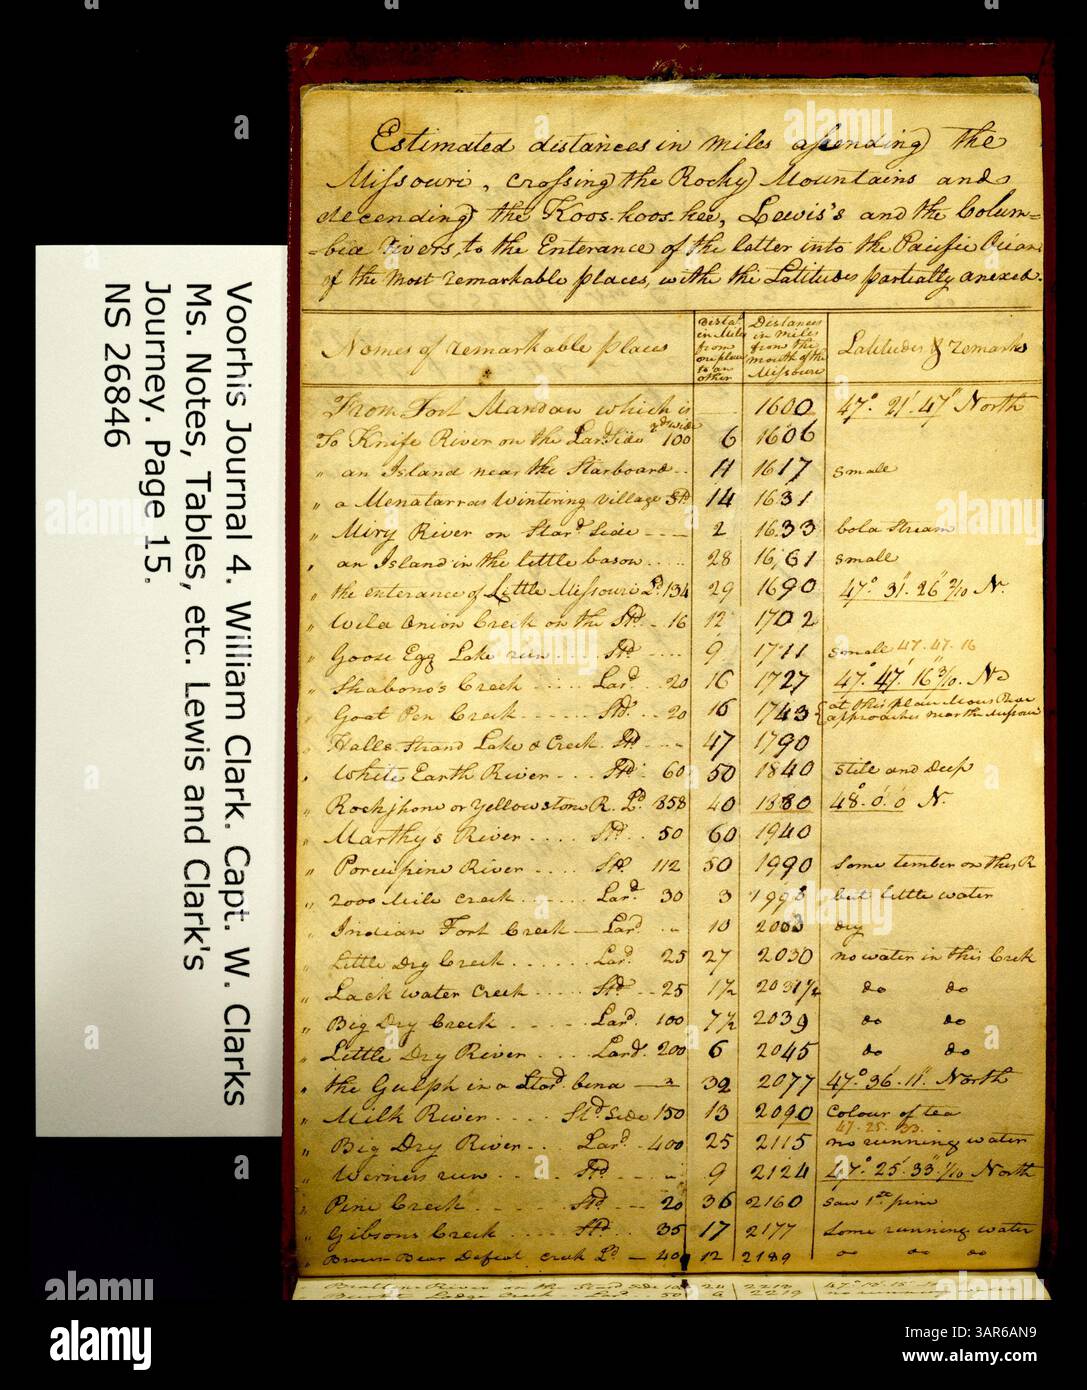 Estimated distances in miles assending the
Missouri, crossing the Rocky Mountains and
decending the Koos-koos-kee, Lewis's and the Colum=
=bia rivers, to the Enterance of the latter into the Pacific Ocian
of the most remarkable places, withe the Latitudes partially anexed.
Names of remarkable places
Distas. in Miles from one place to an other
Distances in miles from the mouth of the Missouri
Latitudes & remarks
From Fort Mandan which is 1600 47° 21' 47" North
To Knife River on the Lard. Side yds wide 100 6 1606
" an Island near the Starboard 11 1617 small
" a Menatarras Wintering Village Std 14 1631
" Miry River on Stard. Side 2 1633 bold Stream
" an Island in the little bason 28 1661 small
" the enterance of Little Missouri Ld. 134 29 1690 47° 31' 26" 2/10 N.
" Wild Onion Creek on the Std. 16 12 1702
" Goose Egg Lake run Std. 9 1711 small 47. 47. 16
" Shabono's Creek Lard. 20 16 1727 47° 47' 16" 3/10. No
" Goat Pen Creek Std. 20 16 1743 at this place Mous River approaches near the Missouri
" Halls Strand Lake & Creek Std. 47 1790
" White Earth River Std. 60 50 1840 still and Deep
" Rockjhone or Yellowstone R. Ld 858 40 1880 48° 0' 0" N.
" Marthys River Std. 50 60 1940
" Porcupine River Std. 112 50 1990 Some timber on this R
" 2000 Mile creek Lard. 30 3 1993 but little water
" Indian Fort Creek Lard. 10 2003 dry
" Little Dry Creek Lard. 25 27 2030 no water in this Creek
" Lack water Creek Std. 25 1½ 2031½ do do
" Big Dry Creek Lard. 100 7½ 2039 do do
" Little Dry River Lard. 200 6 2045 do do
" the Gulph in a Stard. bend 32 2077 47° 36' 11" North
" Milk River Std. Side 150 13 2090 Colour of tea
47. 25. 33.
" Big Dry River Lard. 400 25 2115 no running water
" Werners run Std 9 2124 47° 25' 33" 1/10 North
" Pine Creek Std. 20 36 2160 Saw 1st pine
" Gibsons Creek Std. 35 17 2177 Some running water
" Brown Bear Defeat Creek Ld 40 12 2189 do do do
Voorhis Journal 4. William Clark. Capt. W. Clarks
Ms. Notes, Tables, etc. Lewis and Clark's
Journey. Page 15.
NS 26846
alamy
Image ID: 3AR6AN9
www.alamy.com